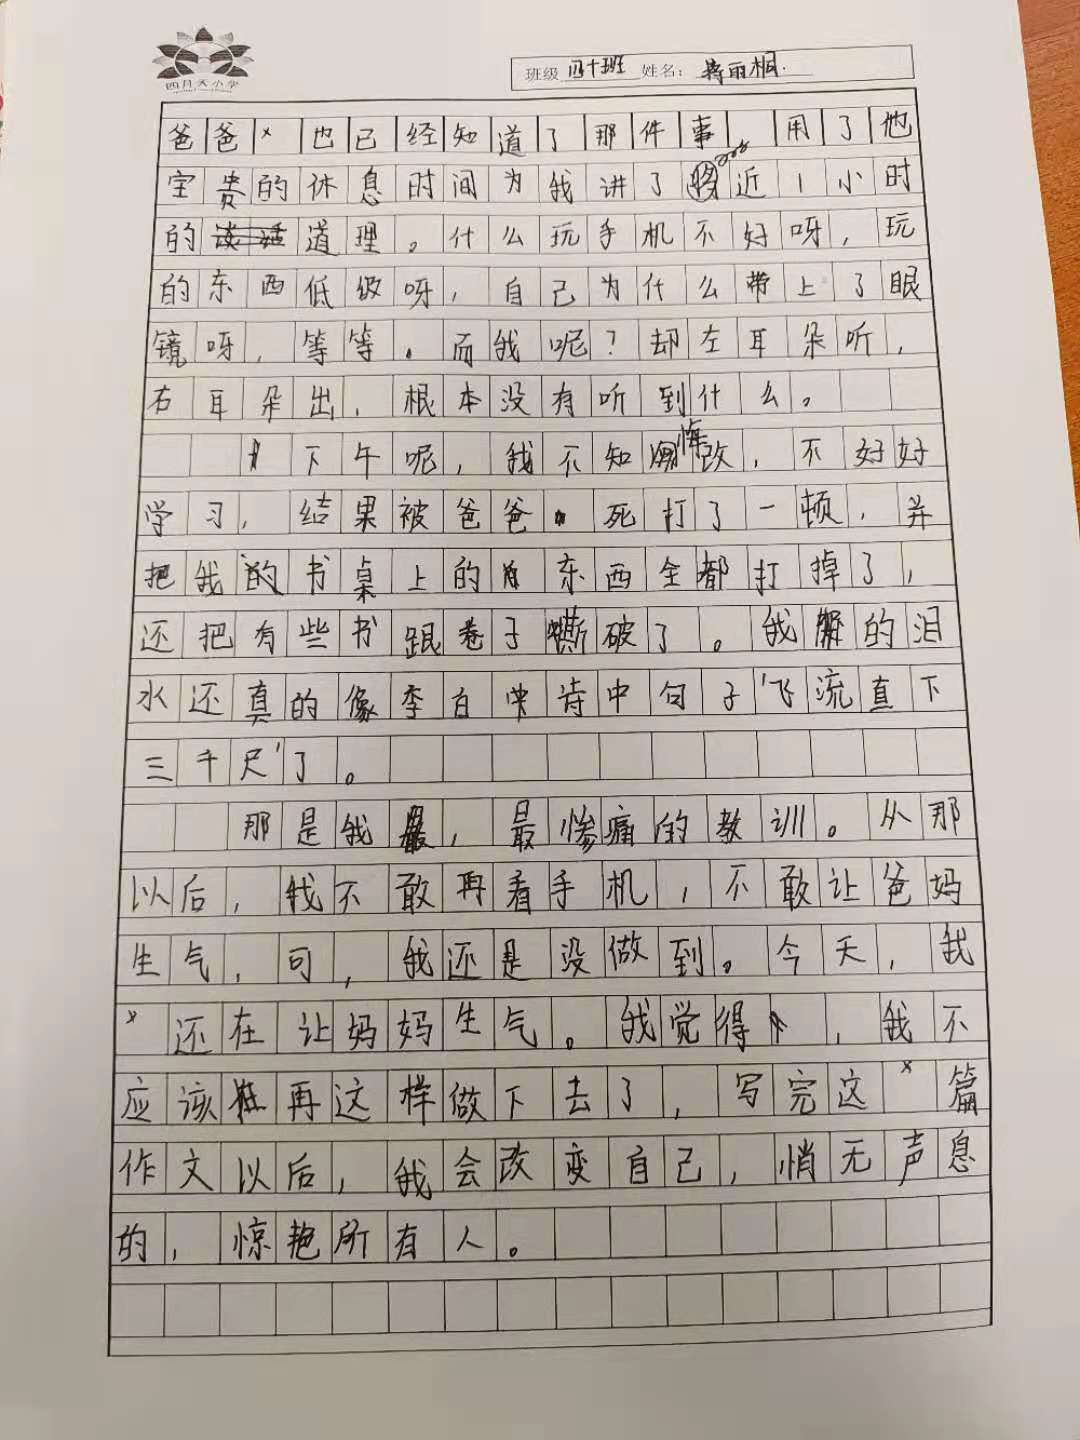 四月天小学
班级 四十班 姓名：蒋雨桐.
爸爸也已经知道了那件事，用了他
宝贵的休息时间为我讲了将近1小时
的道理。什么玩手机不好呀，玩
的东西低级呀，自己为什么带上了眼
镜呀，等等。而我呢？却左耳朵听，
右耳朵出，根本没有听到什么。
下午呢，我不知悔改，不好好
学习，结果被爸爸死打了一顿，并
把我的书桌上的东西全都打掉了，
还把有些书跟卷子撕破了。我的泪
水还真的像李白诗中句子‘飞流直下
三千尺’了。
那是我最，最惨痛的教训。从那
以后，我不敢再看手机，不敢让爸妈
生气，可，我还是没做到。今天，我
还在让妈妈生气。我觉得，我不
应该再这样做下去了，写完这篇
作文以后，我会改变自己，悄无声息
的，惊艳所有人。